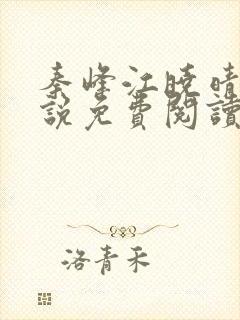 秦峰江曉晴
說免費閱讀
洛青禾